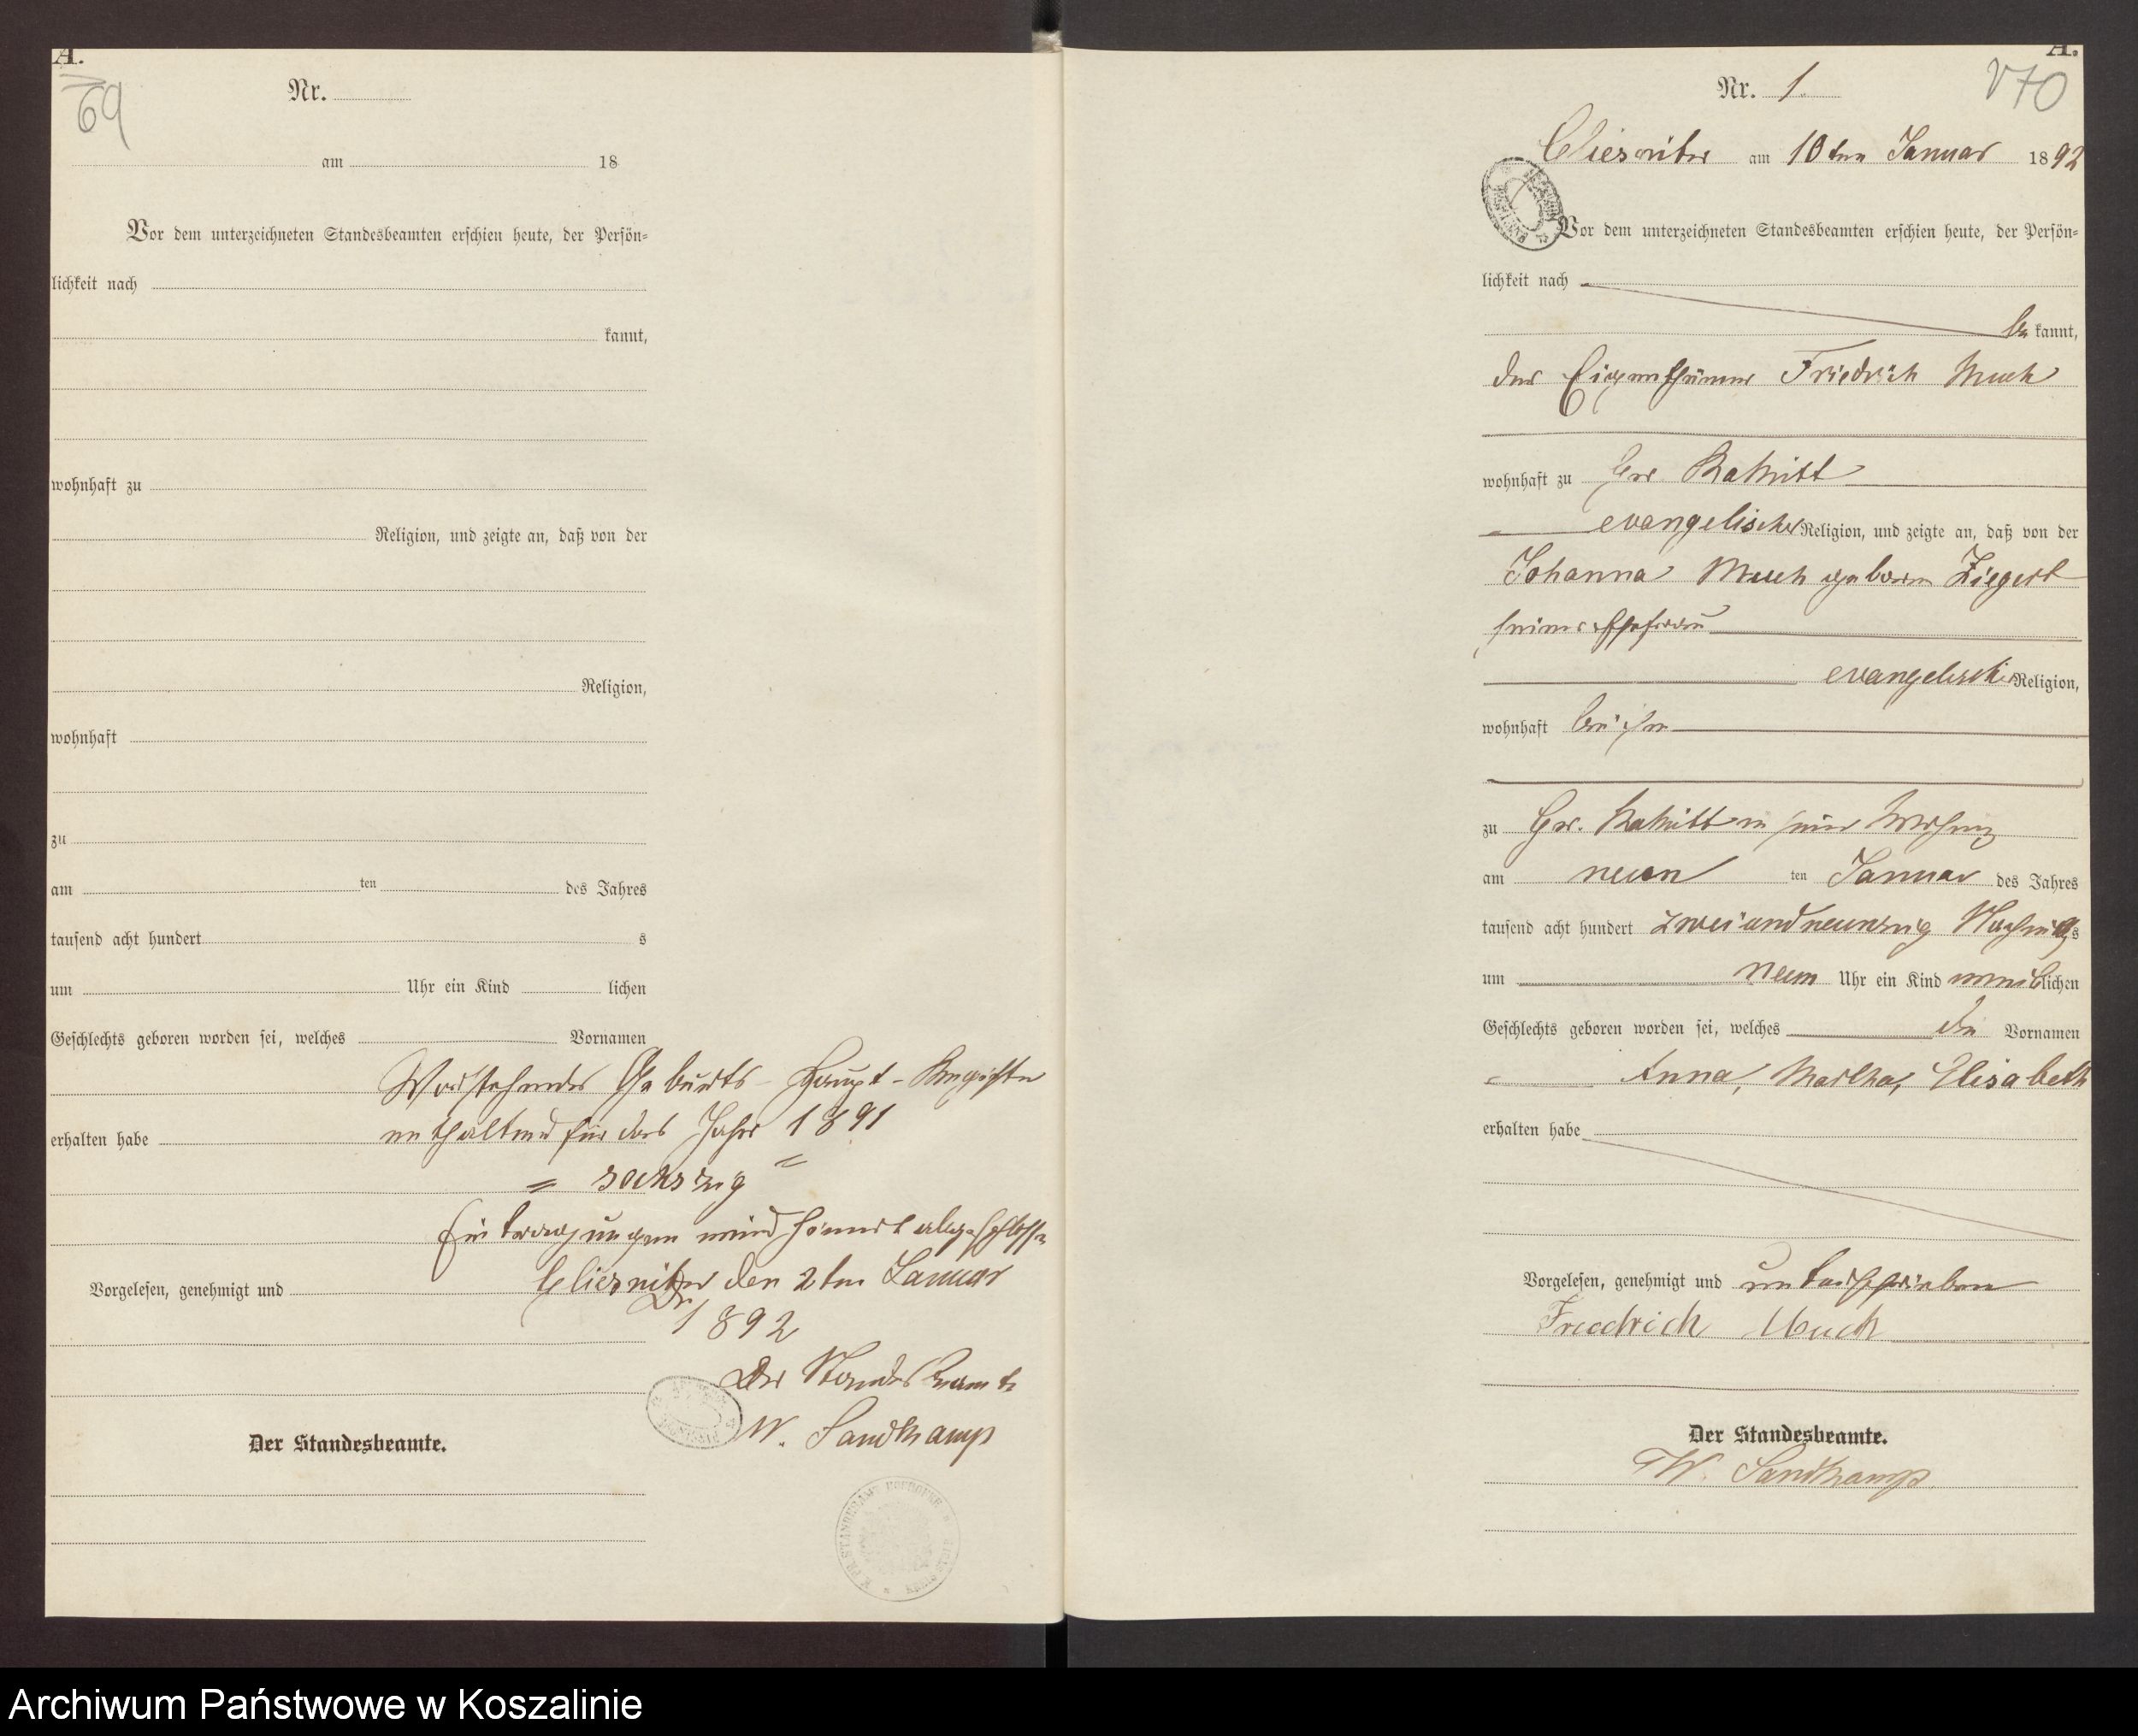 A.
69
Nr.
am 18
Vor dem unterzeichneten Standesbeamten erschien heute, der Persön=
lichkeit nach
kannt,
wohnhaft zu
Religion, und zeigte an, daß von der
Religion,
wohnhaft
zu
am ten des Jahres
tausend acht hundert s
um Uhr ein Kind lichen
Geschlechts geboren worden sei, welches Vornamen
Vorstehendes Geburts-Haupt-Register
erhalten habe
enthaltend für das Jahr 1891
= sechszig =
Eintragungen wird hiermit abgeschlossen
Vorgelesen, genehmigt und
den 2ten Januar
1892
Der Standesbeamte
W. Sandkamp
Der Standesbeamte.
A.
70
Nr. 1.
am 10ten Januar 1892
Vor dem unterzeichneten Standesbeamten erschien heute, der Persön=
lichkeit nach
be kannt,
der Eigenthümer Friedrich Much
wohnhaft zu Gr.
evangelischer Religion, und zeigte an, daß von der
Johanna Much geboren Ziegert
seiner Ehefrau
evangelischer Religion,
wohnhaft bei ihm
zu Gr. in seiner Wohnung
am neun ten Januar des Jahres
tausend acht hundert zweiundneunzig Nachmittags
um neun Uhr ein Kind weiblichen
Geschlechts geboren worden sei, welches die Vornamen
Anna, Martha, Elisabeth
erhalten habe
Vorgelesen, genehmigt und unterschrieben
Friedrich Much
Der Standesbeamte.
W. Sandkamp.
Archiwum Państwowe w Koszalinie